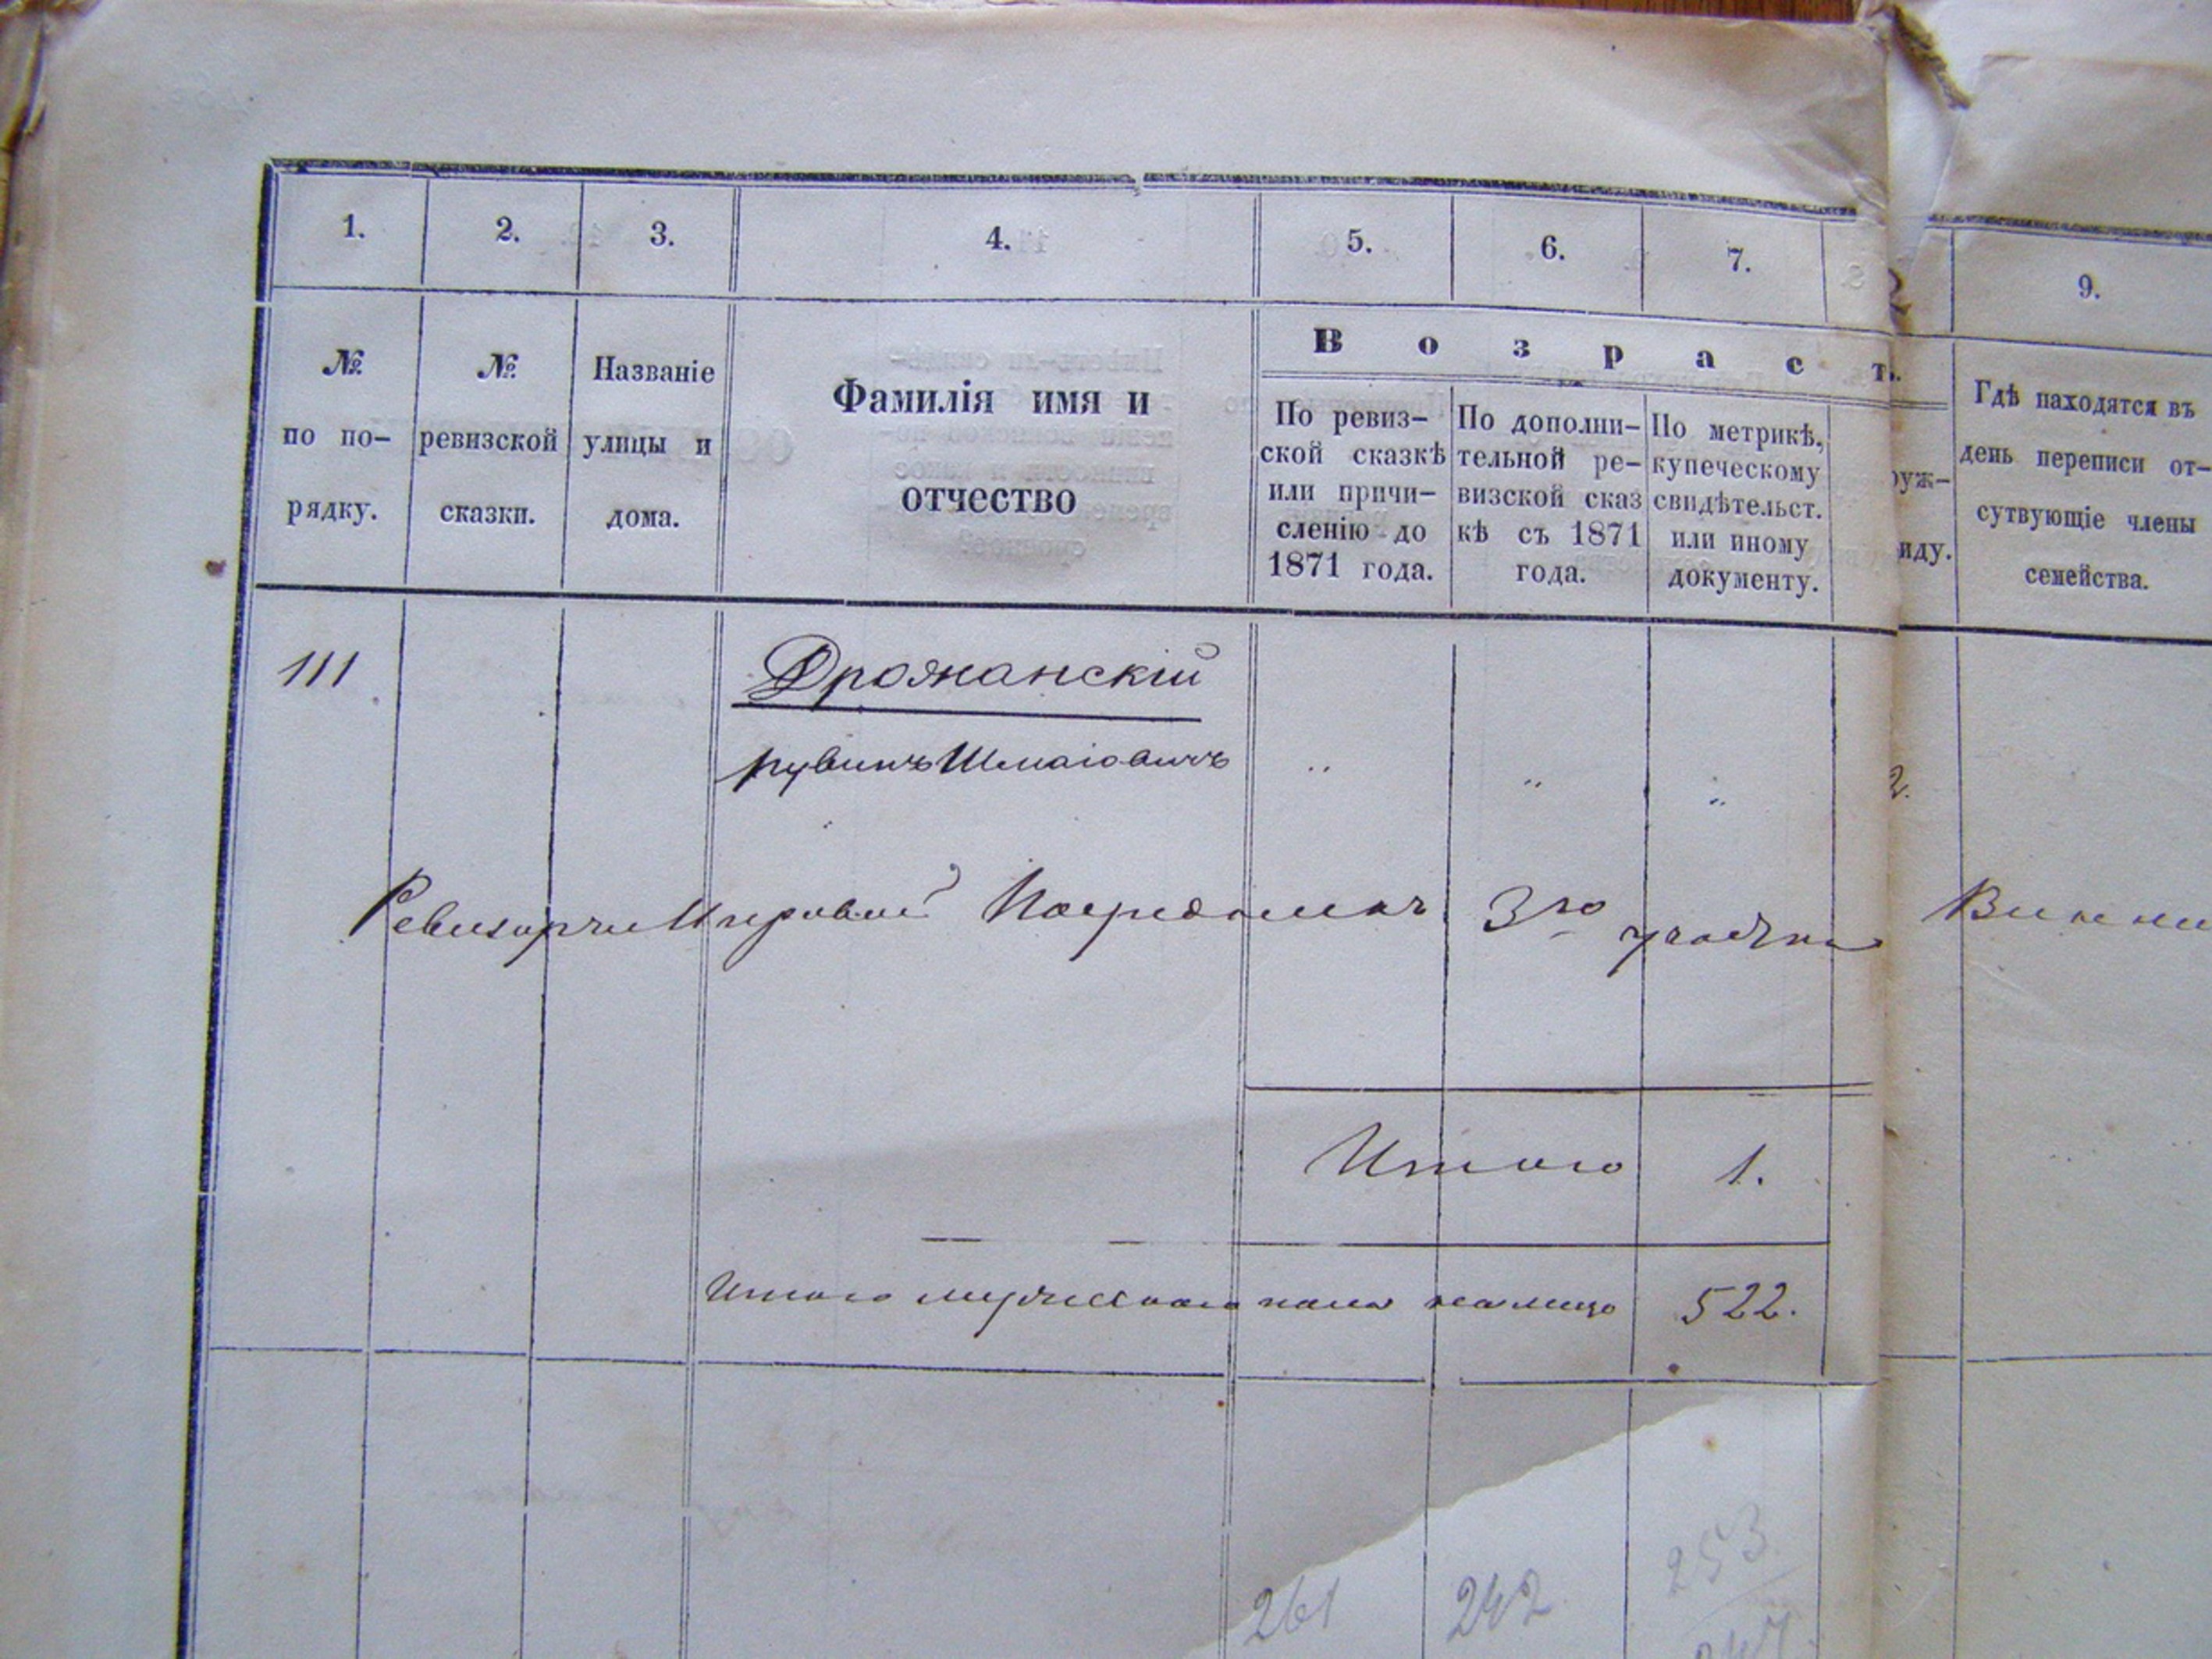 1. 2. 3. 4. 5. 6. 7. 9.
№ по по-
рядку.
№
ревизской
сказки.
Названіе
улицы и
дома.
Фамилія имя и
отчество
Возраст.
По ревиз-
ской сказкѣ
или причи-
сленію до
1871 года.
По дополни-
тельной ре-
визской сказ
кѣ съ 1871
года.
По метрикѣ,
купеческому
свидѣтельст.
или иному
документу.
руж-
иду.
Гдѣ находятся въ
день переписи от-
сутвующіе члены
семейства.
111 Дрожанскій
Рувинъ Шмаіовичъ " " "
2.
Мировой Посредникъ 3го участка
Итого 1.
Итого мужескаго пола налицо 522.
261 242 253